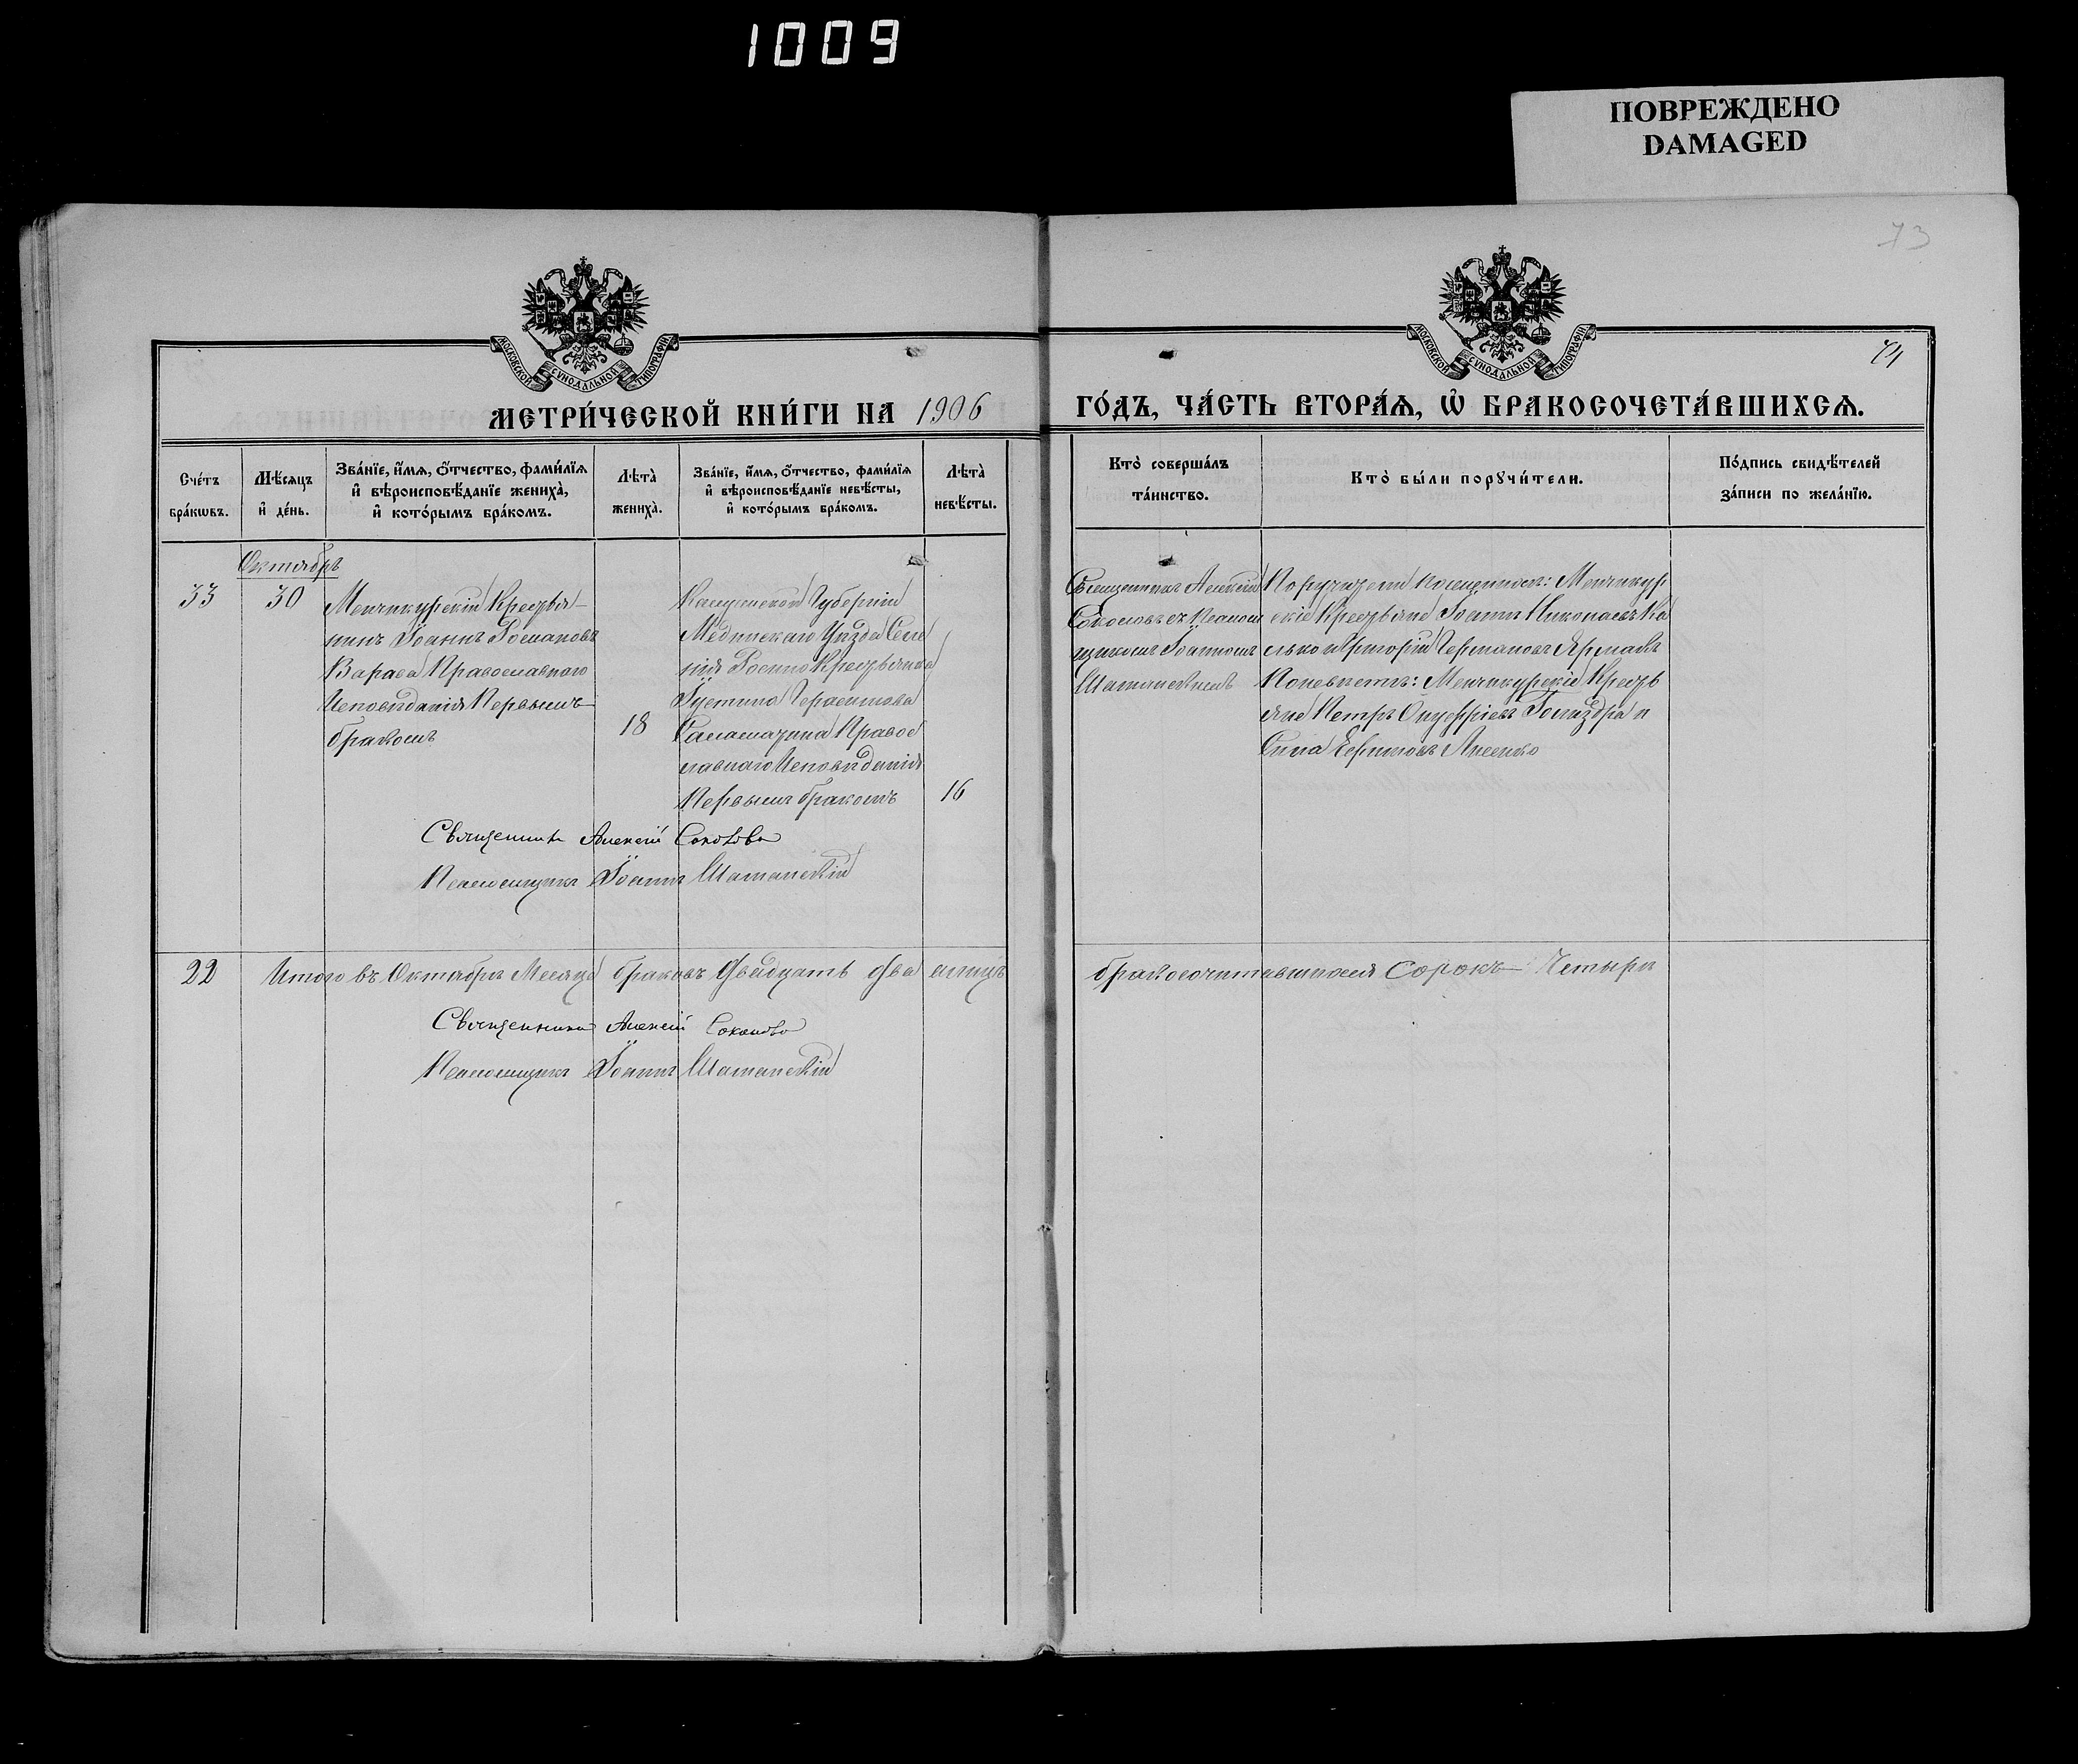 1009
ПОВРЕЖДЕНО
DAMAGED
73
МОСКОВСКОЙ СУНОДАЛЬНОЙ ТИПОГРАФІИ
МОСКОВСКОЙ СУНОДАЛЬНОЙ ТИПОГРАФІИ
МЕТРИ́ЧЕСКОЙ КНИ́ГИ НА 1906
ГО́ДЪ, ЧА́СТЬ ВТОРА́Ѧ, Ѡ҆ БРАКОСОЧЕТА́ВШИХСѦ.
Сче́тъ
бра́кѡвъ.
Мѣ́сяцъ
и҆ де́нь.
Зва́нїе, и҆́мѧ, ѻ҆́тчество, фами́лїѧ
и҆ вѣроисповѣ́данїе жениха̀,
и҆ кото́рымъ бра́комъ.
Лѣта̀
жениха̀.
Зва́нїе, и҆́мѧ, ѻ҆́тчество, фами́лїѧ
и҆ вѣроисповѣ́данїе невѣ́сты,
и҆ кото́рымъ бра́комъ.
Лѣта̀
невѣ́сты.
Кто̀ соверша́лъ
та́инство.
Кто̀ бы́ли порꙋчи́тели.
По́дпись свидѣ́телей
за́писи по жела́нїю.
Октябрь
33
30
Менчикурскій Крестья-
нинъ Іоаннъ Романовъ
Варава Православнаго
Исповѣданія Первымъ
бракомъ
18
Калужской Губерніи
Мединскаго Уѣзда Селе
нія Рослно Крестьянка
Іустина Герасимова
Православ
славнаго Исповѣданія
Первымъ бракомъ
16
Священникъ Алексій
Соколовъ съ Псаломъ
щикомъ Іоанномъ
Шаманскимъ
Поручители по женихѣ: Менчикур
скіе Крестьяне Іоаннъ Николаевъ Ка
и Григорій Германовъ Ярмакъ
По невѣстѣ: Менчикурскіе Кресть
яне Петръ Онуфріевъ и
Сила Ефимовъ Лисенко
Священникъ Алексій Соколовъ
Псаломщикъ Іоаннъ Шаманскій
22
Итого въ Октябрѣ Месяцѣ браковъ двадцать два лицъ
бракосочитавшихся Сорокъ Четыре
Священникъ Алексій Соколовъ
Псаломщикъ Іоаннъ Шаманскій